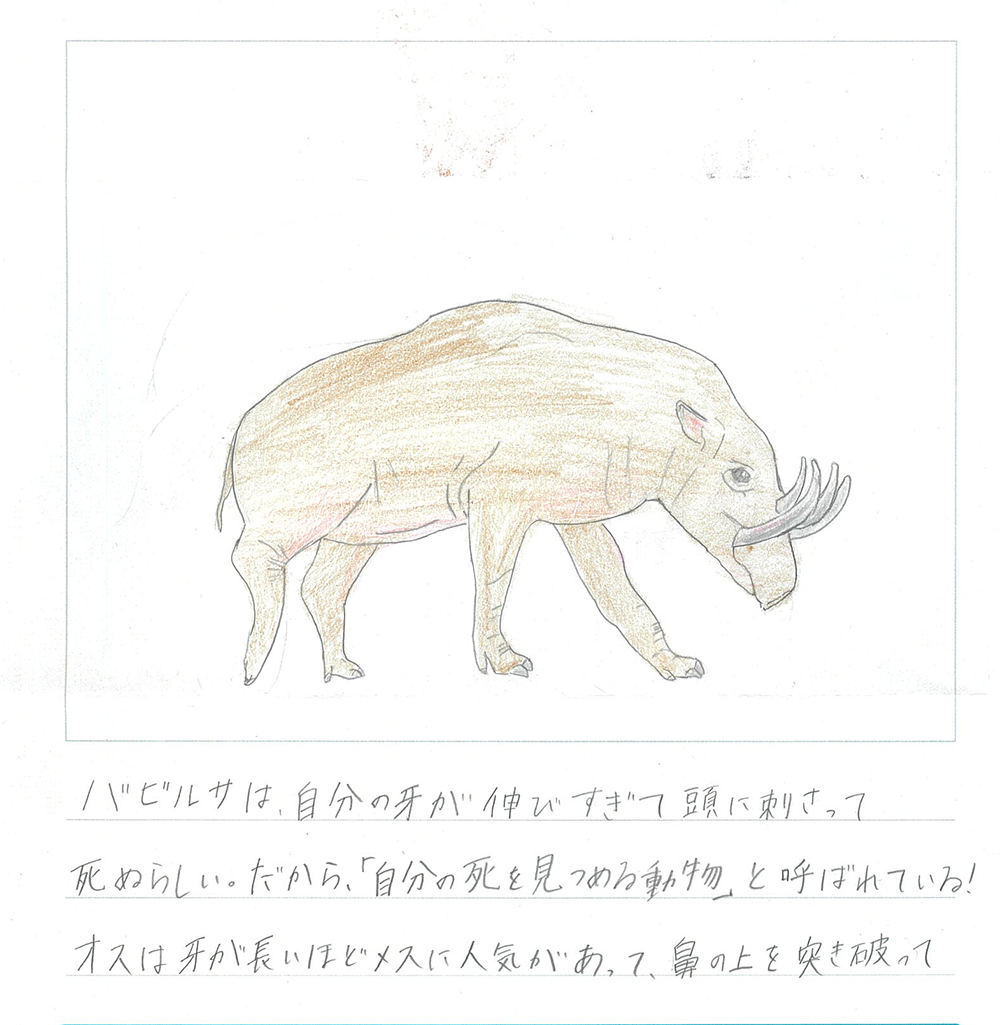 バビルサは、自分の牙が伸びすぎて頭に刺さって
死ぬらしい。だから、「自分の死を見つめる動物」と呼ばれている!
オスは牙が長いほどメスに人気があって、鼻の上を突き破って